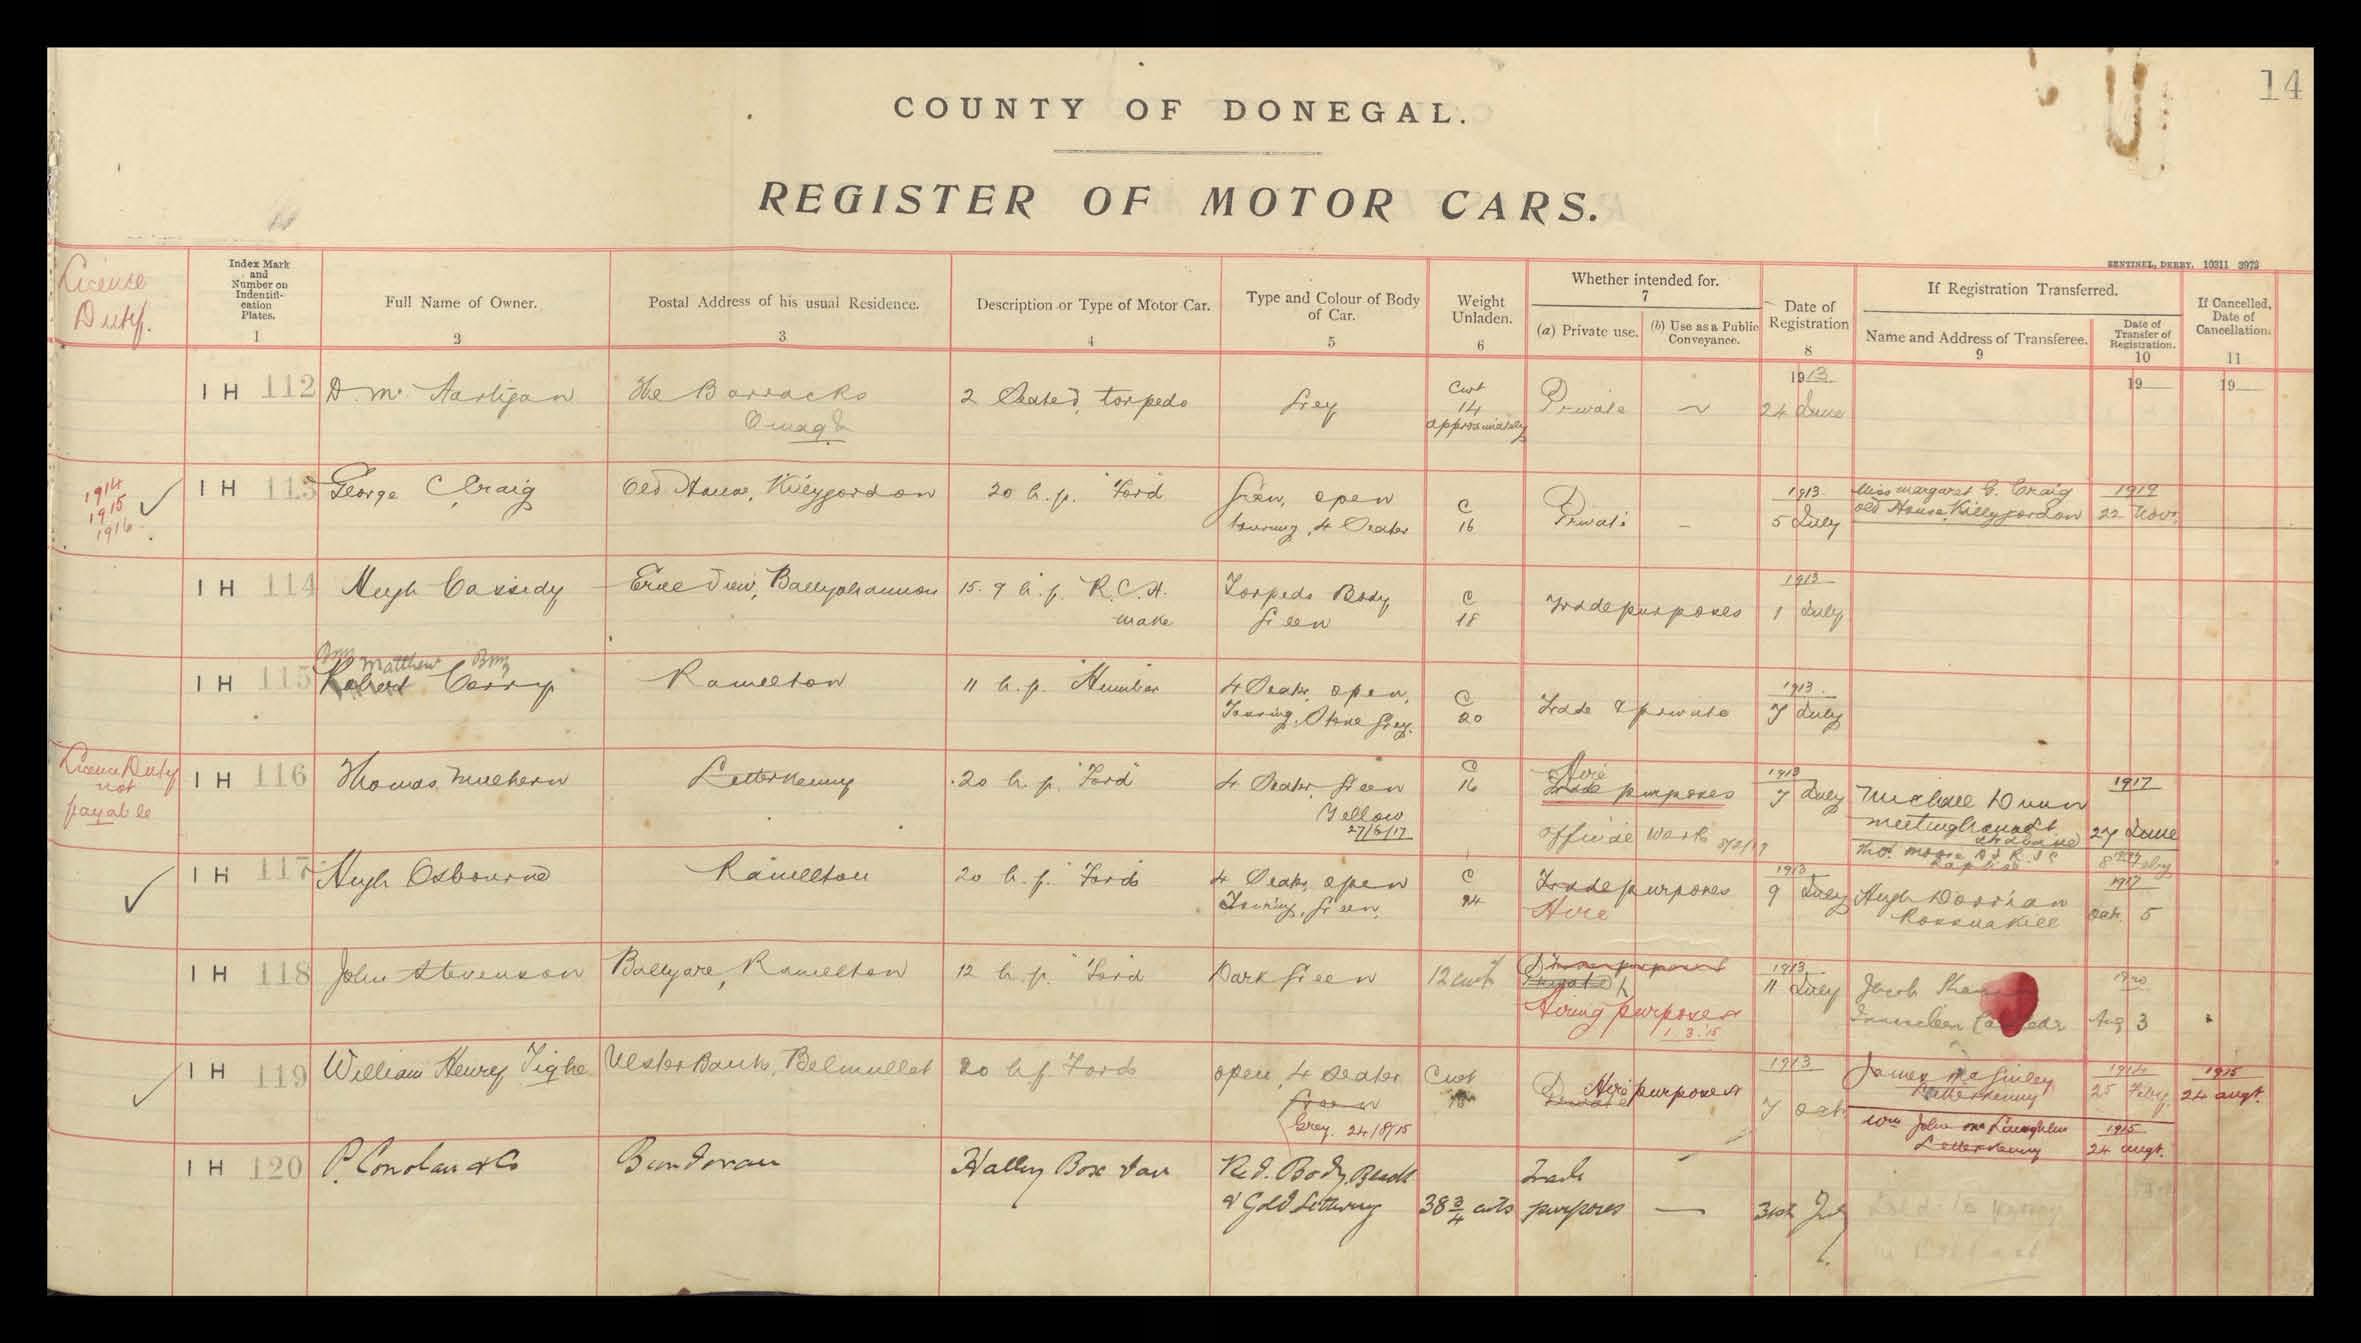 14
COUNTY OF DONEGAL.
REGISTER OF MOTOR CARS.
SENTINEL, DERRY. 10311 3973
License
Duty.
Index Mark
and
Number on
Indentifi-
cation
Plates.
1
Full Name of Owner.
2
Postal Address of his usual Residence.
3
Description or Type of Motor Car.
4
Type and Colour of Body
of Car.
5
Weight
Unladen.
6
Whether intended for.
7
(a) Private use.
(b) Use as a Public
Conveyance.
Date of
Registration
8
If Registration Transferred.
Name and Address of Transferee.
9
Date of
Transfer of
Registration.
10
If Cancelled,
Date of
Cancellation.
11
I H 112
D. Mc Hartigan
The Barracks
Omagh
2 Seated, torpedo
Grey
Cwt
14
approximately
Private
1913
24 June
19
19
1914
1915
1916
I H 113
George C. Craig
Old House, Killygordon
20 h.p. "Ford
Green, open
touring, 4 Seater
C
16
Private
–
1913
5 July
Miss Margaret G. Craig
Old House Killygordon
1919
22 Nov.
I H 114
Hugh Cassidy
Erne View, Ballyshannon
15.9 h.p. R.C.H.
make
Torpedo Body
Green
C
18
Trade purposes
1913
1 July
I H 115
Matthew
Robert Kerry
Ramelton
11 h.p. "Humber
4 Seater, open,
Touring, Stone Grey.
C
20
Trade & private
1913
7 July
Licence Duty
not
payable
I H 116
Thomas Mulhern
Letterkenny
20 h.p. "Ford"
4 Seater, Green
Yellow
27/6/17
C
16
Hire
Trade purposes
Official work
1913
7 July
Michael Dunn
Meetinghouse St
Strabane
1917
27 June
Thos. Moore D I R I C
Raphoe
I H 117
Hugh Osbourne
Ramelton
20 h.p. "Fords
4 Seater, open
Touring, Green.
C
Trade purposes
Hire
1913
9 July
Hugh Dorrian
Rossnakill
1917
Oct. 5
I H 118
John Stevenson
Ballyare, Ramelton
12 h.p. "Ford
Dark Green
12 cwt
Private
Hiring purposes
1.3.'15
1913
11 July
Jacob
1920
Aug 3
I H 119
William Henry Tighe
Ulster Bank, Belmullet
20 h.p. Fords
open, 4 Seater
Green
Grey. 24/8/15
Cwt
Private
Hire purposes
1913
7 Oct
James McGinley
Letterkenny
1914
25 Feby.
1915
24 augt.
Wm John McLaughlin
Letterkenny
1915
24 augt.
I H 120
P. Conolan & Co
Bundoran
Halley Box Van
Red. Body, Black
& Gold Lettering
38 3/4 cwts
Trade
purposes
—
31st July